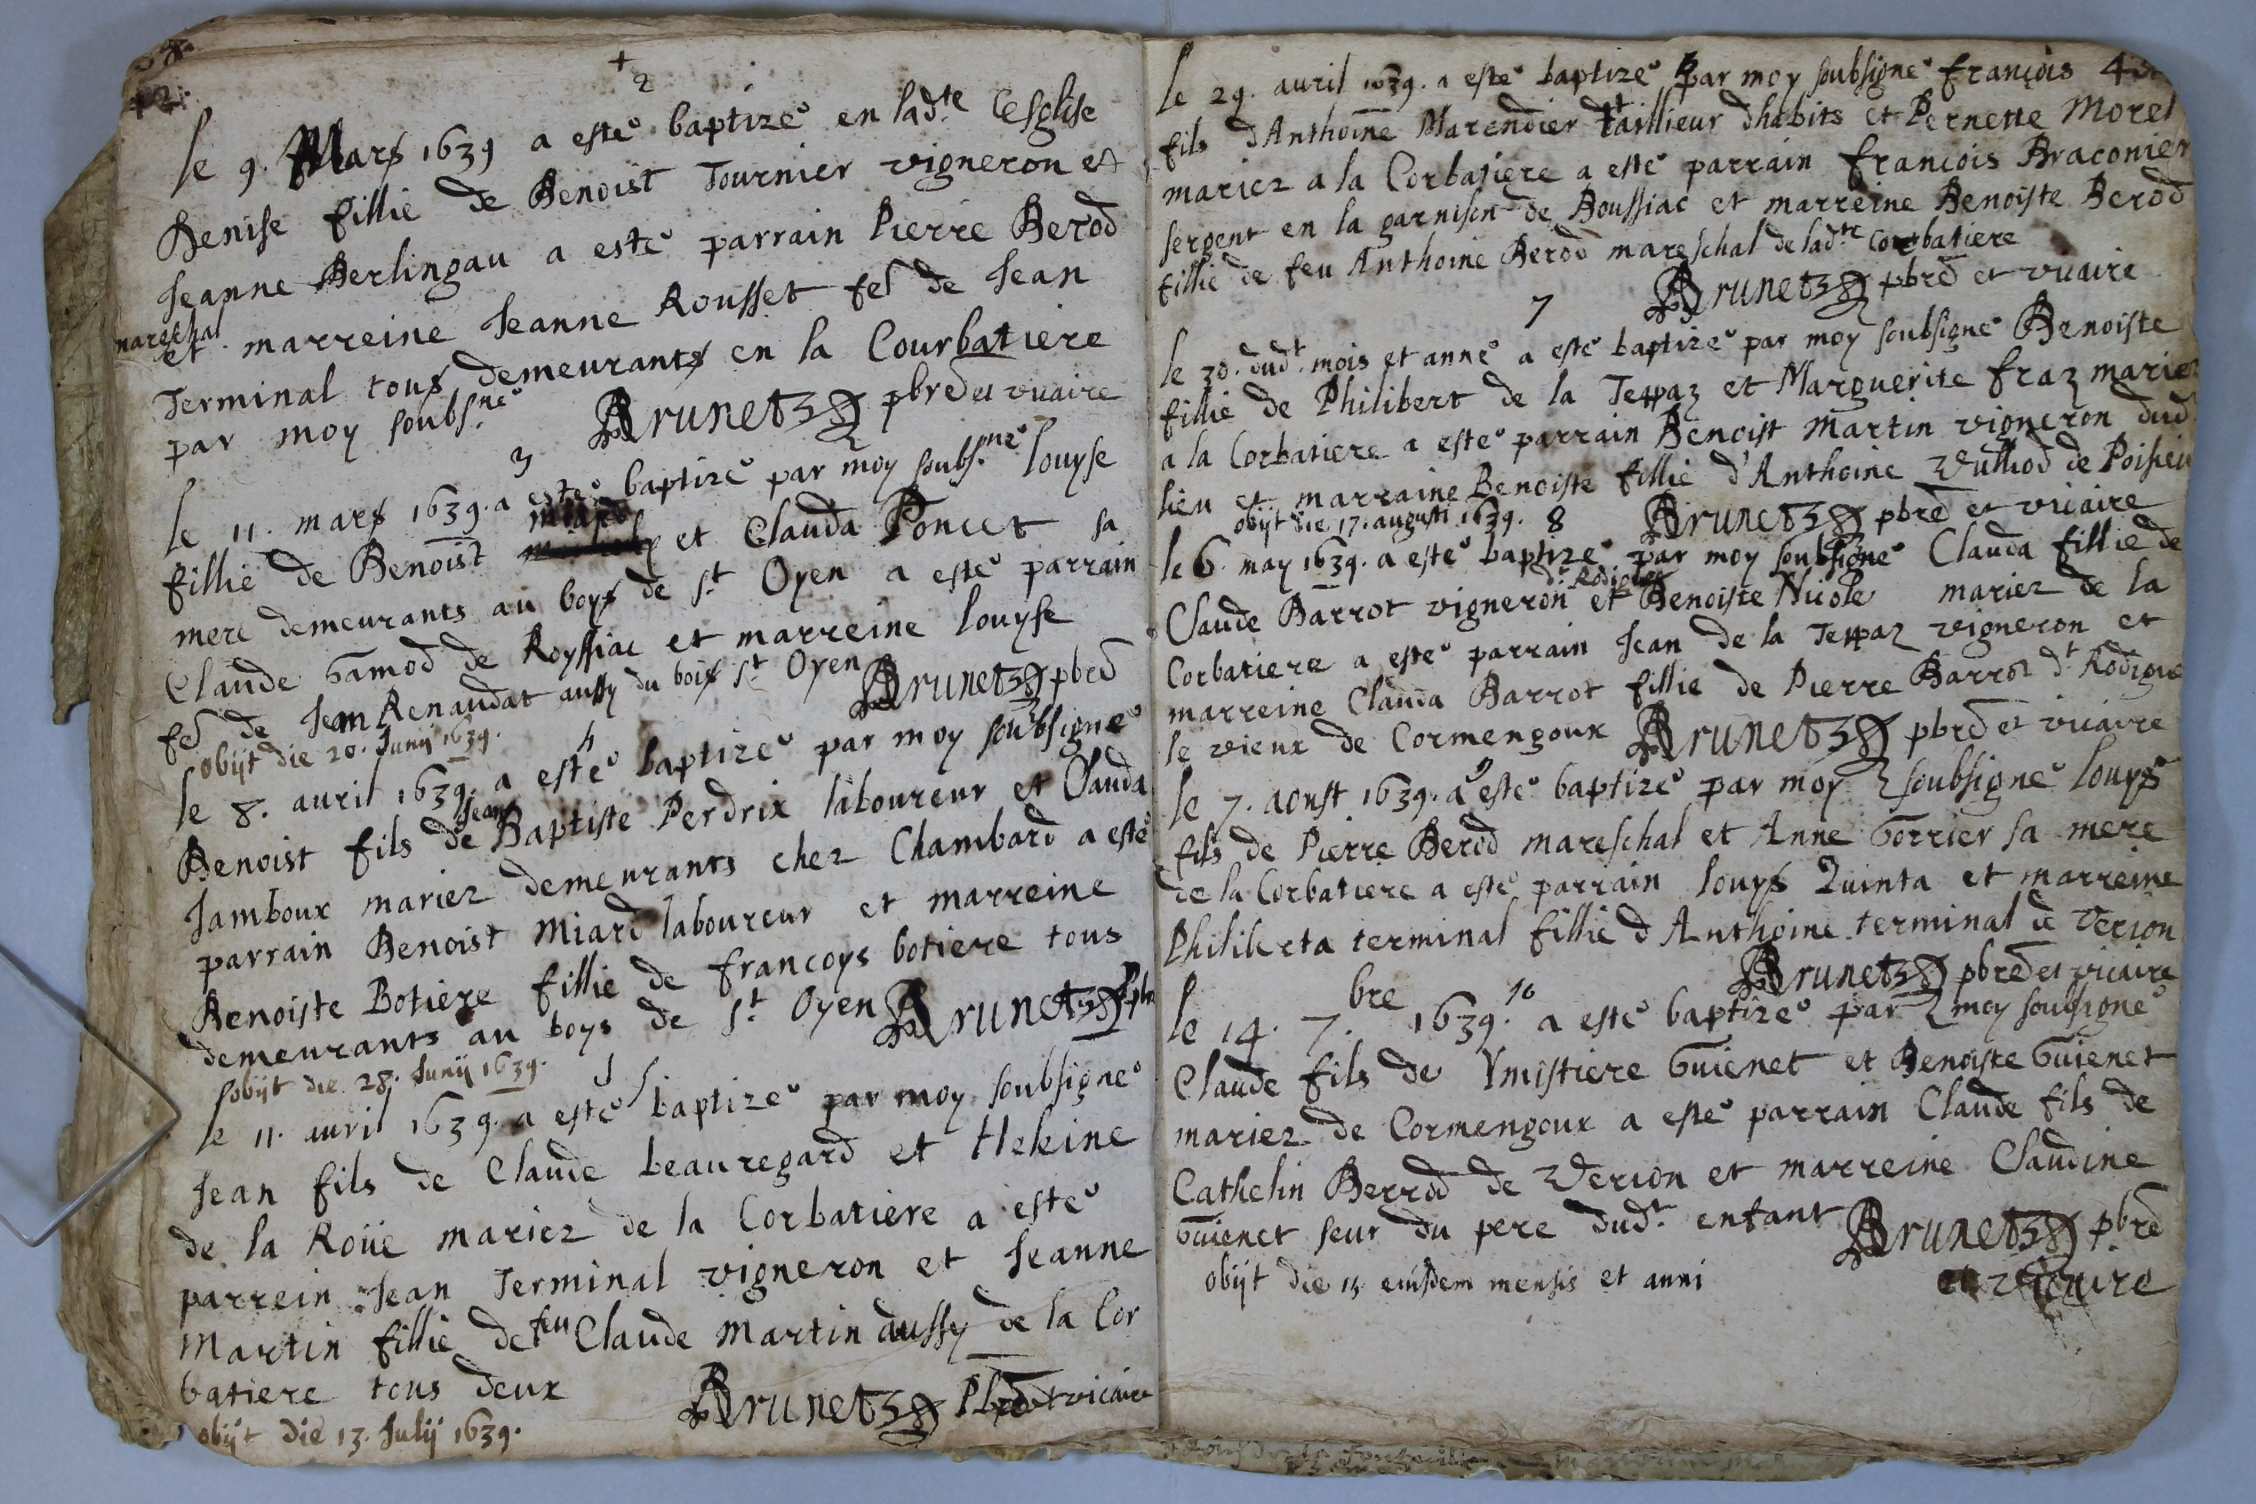 42.
+
2
le 9. Mars 1639 a esté baptizé en lad.te Esglise
Denise fillie de Benoist Tournier vigneron et
Jeanne Berlingau a esté parrain Pierre Berod
mareschal
et marreine Jeanne Rousset fe de Jean
Terminal tous demeurants en la Courbatiere
par moy soubs.né Brunet pbre et vicaire
3
le 11. mars 1639. a esté baptizé par moy soubs.né louyse
fillie de Benoist miard et Clauda Poncet sa
mere demeurants au boys de s.t Oyen a esté parrain
Claude Gamod de Royssiac et marreine louyse
fe de Jean Renaudat aussy du bois s.t Oyen Brunet pbre
obijt die 20. Junij 1639.
4
le 8. avril 1639. a esté baptizé par moy soubsigné
Benoist fils de Jean Baptiste Perdrix laboureur et Clauda
Jamboux mariez demeurants chez Chambard a esté
parrain Benoist Miard laboureur et marreine
Benoiste Botiere fillie de francoys botiere tous
demeurants au boys de s.t Oyen Brunet pbre
obijt die 28. Junij 1639.
5
le 11. avril 1639. a esté baptizé par moy soubsigné
Jean fils de Claude beauregard et Heleine
de la Roüe mariez de la Corbatiere a esté
parrein Jean Terminal vigneron et Jeanne
Martin fillie de feu Claude Martin aussy de la Cor
batiere tous deux Brunet Pbre et vicaire
obijt die 13. Julij 1639.
le 29. avril 1639. a esté baptizé par moy soubsigné françois
fils d'Anthoine Marendier taillieur dhabits et Pernette Morel
mariez a la Corbatiere a esté parrain françois Braconier
sergent en la garnison de Boussiac et marreine Benoiste Berod
fillie de feu Anthoine Berod mareschal de lad.te Corbatiere
Brunet pbre et vicaire
7
le 30. dud.t mois et anné a esté baptizé par moy soubsigné Benoiste
fillie de Philibert de la Teppaz et Marguerite fraz mariez
a la Corbatiere a esté parrain Benoist Martin vigneron dud.
lieu et marraine Benoiste fillie d'Anthoine Vulliod de Poisieu
obijt die 17. augusti 1639. 8 Brunet pbre et vicaire
le 6. may 1639. a esté baptizé par moy soubsigné Clauda fillie de
Claude Barrot vigneron d.t Rodigue et Benoiste Nicole mariez de la
Corbatiere a esté parrain Jean de la Teppaz vigneron et
marreine Clauda Barrot fillie de Pierre Barrot d.t Rodigue
le vieux de Cormengoux Brunet pbre et vicaire
9
le 7. aoust 1639. a esté baptizé par moy soubsigné louys
fils de Pierre Berod mareschal et Anne Gorrier sa mere
de la Corbatiere a esté parrain louys Quinta et marreine
Philiberta terminal fillie d Anthoine terminal de Verion
Brunet pbre et vicaire
10
le 14. 7.bre 1639. a esté baptizé par moy soubsigné
Claude fils de Ymistiere Guienet et Benoiste Guienet
mariez de Cormengoux a esté parrain Claude fils de
Cathelin Berrod de Verion et marreine Claudine
Guienet seur du pere dud.t enfant Brunet pbre
obijt die 15 eiusdem mensis et anni et vicaire